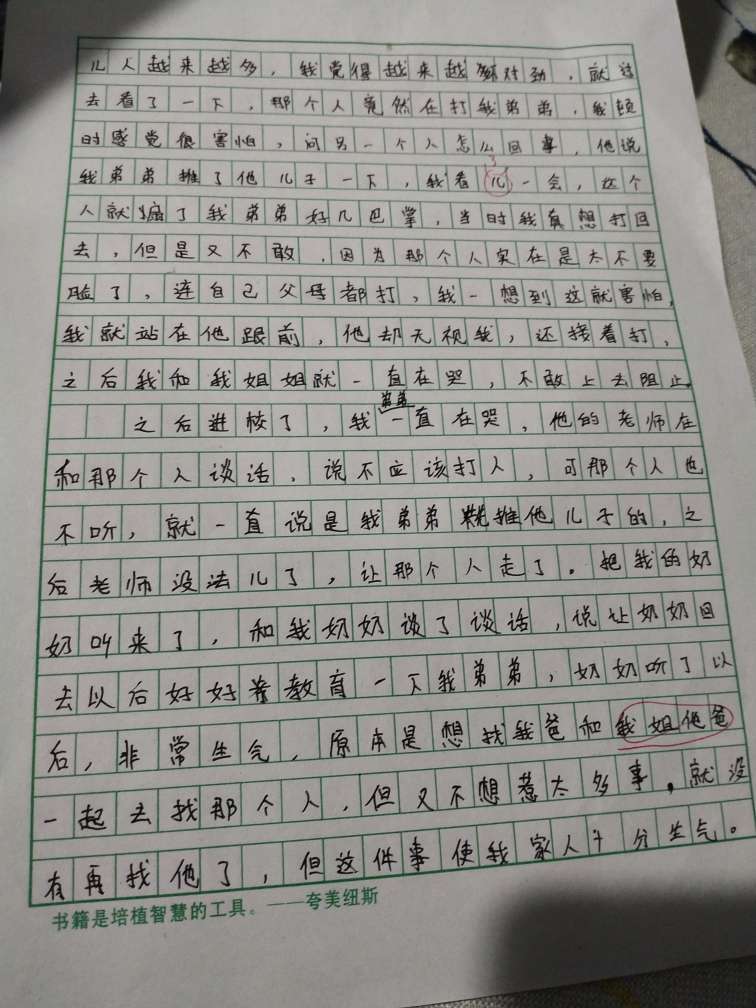 儿人越来越多，我觉得越来越不对劲，就过
去看了一下，那个人竟然在打我弟弟，我顿
时感觉很害怕，问另一个人怎么回事，他说
我弟弟推了他儿子一下，我看儿一会，这个
人就扇了我弟弟好几巴掌，当时我真想打回
去，但是又不敢，因为那个人实在是太不要
脸了，连自己父母都打，我一想到这就害怕，
我就站在他跟前，他却无视我，还接着打，
之后我和我姐姐就一直在哭，不敢上去阻止。
之后进校了，我弟弟一直在哭，他的老师在
和那个人谈话，说不应该打人，可那个人也
不听，就一直说是我弟弟推他儿子的，之
后老师没法儿了，让那个人走了。把我的奶
奶叫来了，和我奶奶谈了谈话，说让奶奶回
去以后好好教育一下我弟弟，奶奶听了以
后，非常生气，原本是想找我爸和我姐他爸
一起去找那个人，但又不想惹太多事，就没
有再找他了，但这件事使我家人十分生气。
书籍是培植智慧的工具。——夸美纽斯